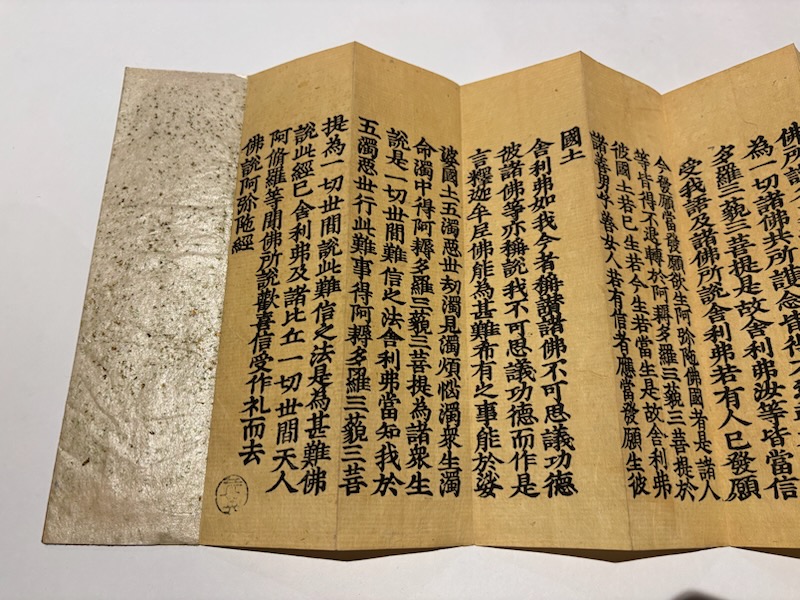 佛所說
為一切諸佛共所護念皆得不
多羅三藐三菩提是故舍利弗汝等皆當信
受我語及諸佛所說舍利弗若有人已發願
今發願當發願欲生阿弥陁佛國者是諸人
等皆得不退轉於阿耨多羅三藐三菩提於
彼國土若已生若今生若當生是故舍利弗
諸善男子善女人若有信者應當發願生彼
國土
舍利弗如我今者稱讚諸佛不可思議功德
彼諸佛等亦稱說我不可思議功德而作是
言釋迦牟尼佛能為甚難希有之事能於娑
婆國土五濁惡丗劫濁見濁煩惱濁衆生濁
命濁中得阿耨多羅三藐三菩提為諸衆生
說是一切丗間難信之法舍利弗當知我於
五濁惡丗行此難事得阿耨多羅三藐三菩
提為一切丗間說此難信之法是為甚難佛
說此經已舍利弗及諸比丘一切丗間天人
阿脩羅等聞佛所說歡喜信受作礼而去
佛說阿弥陁經